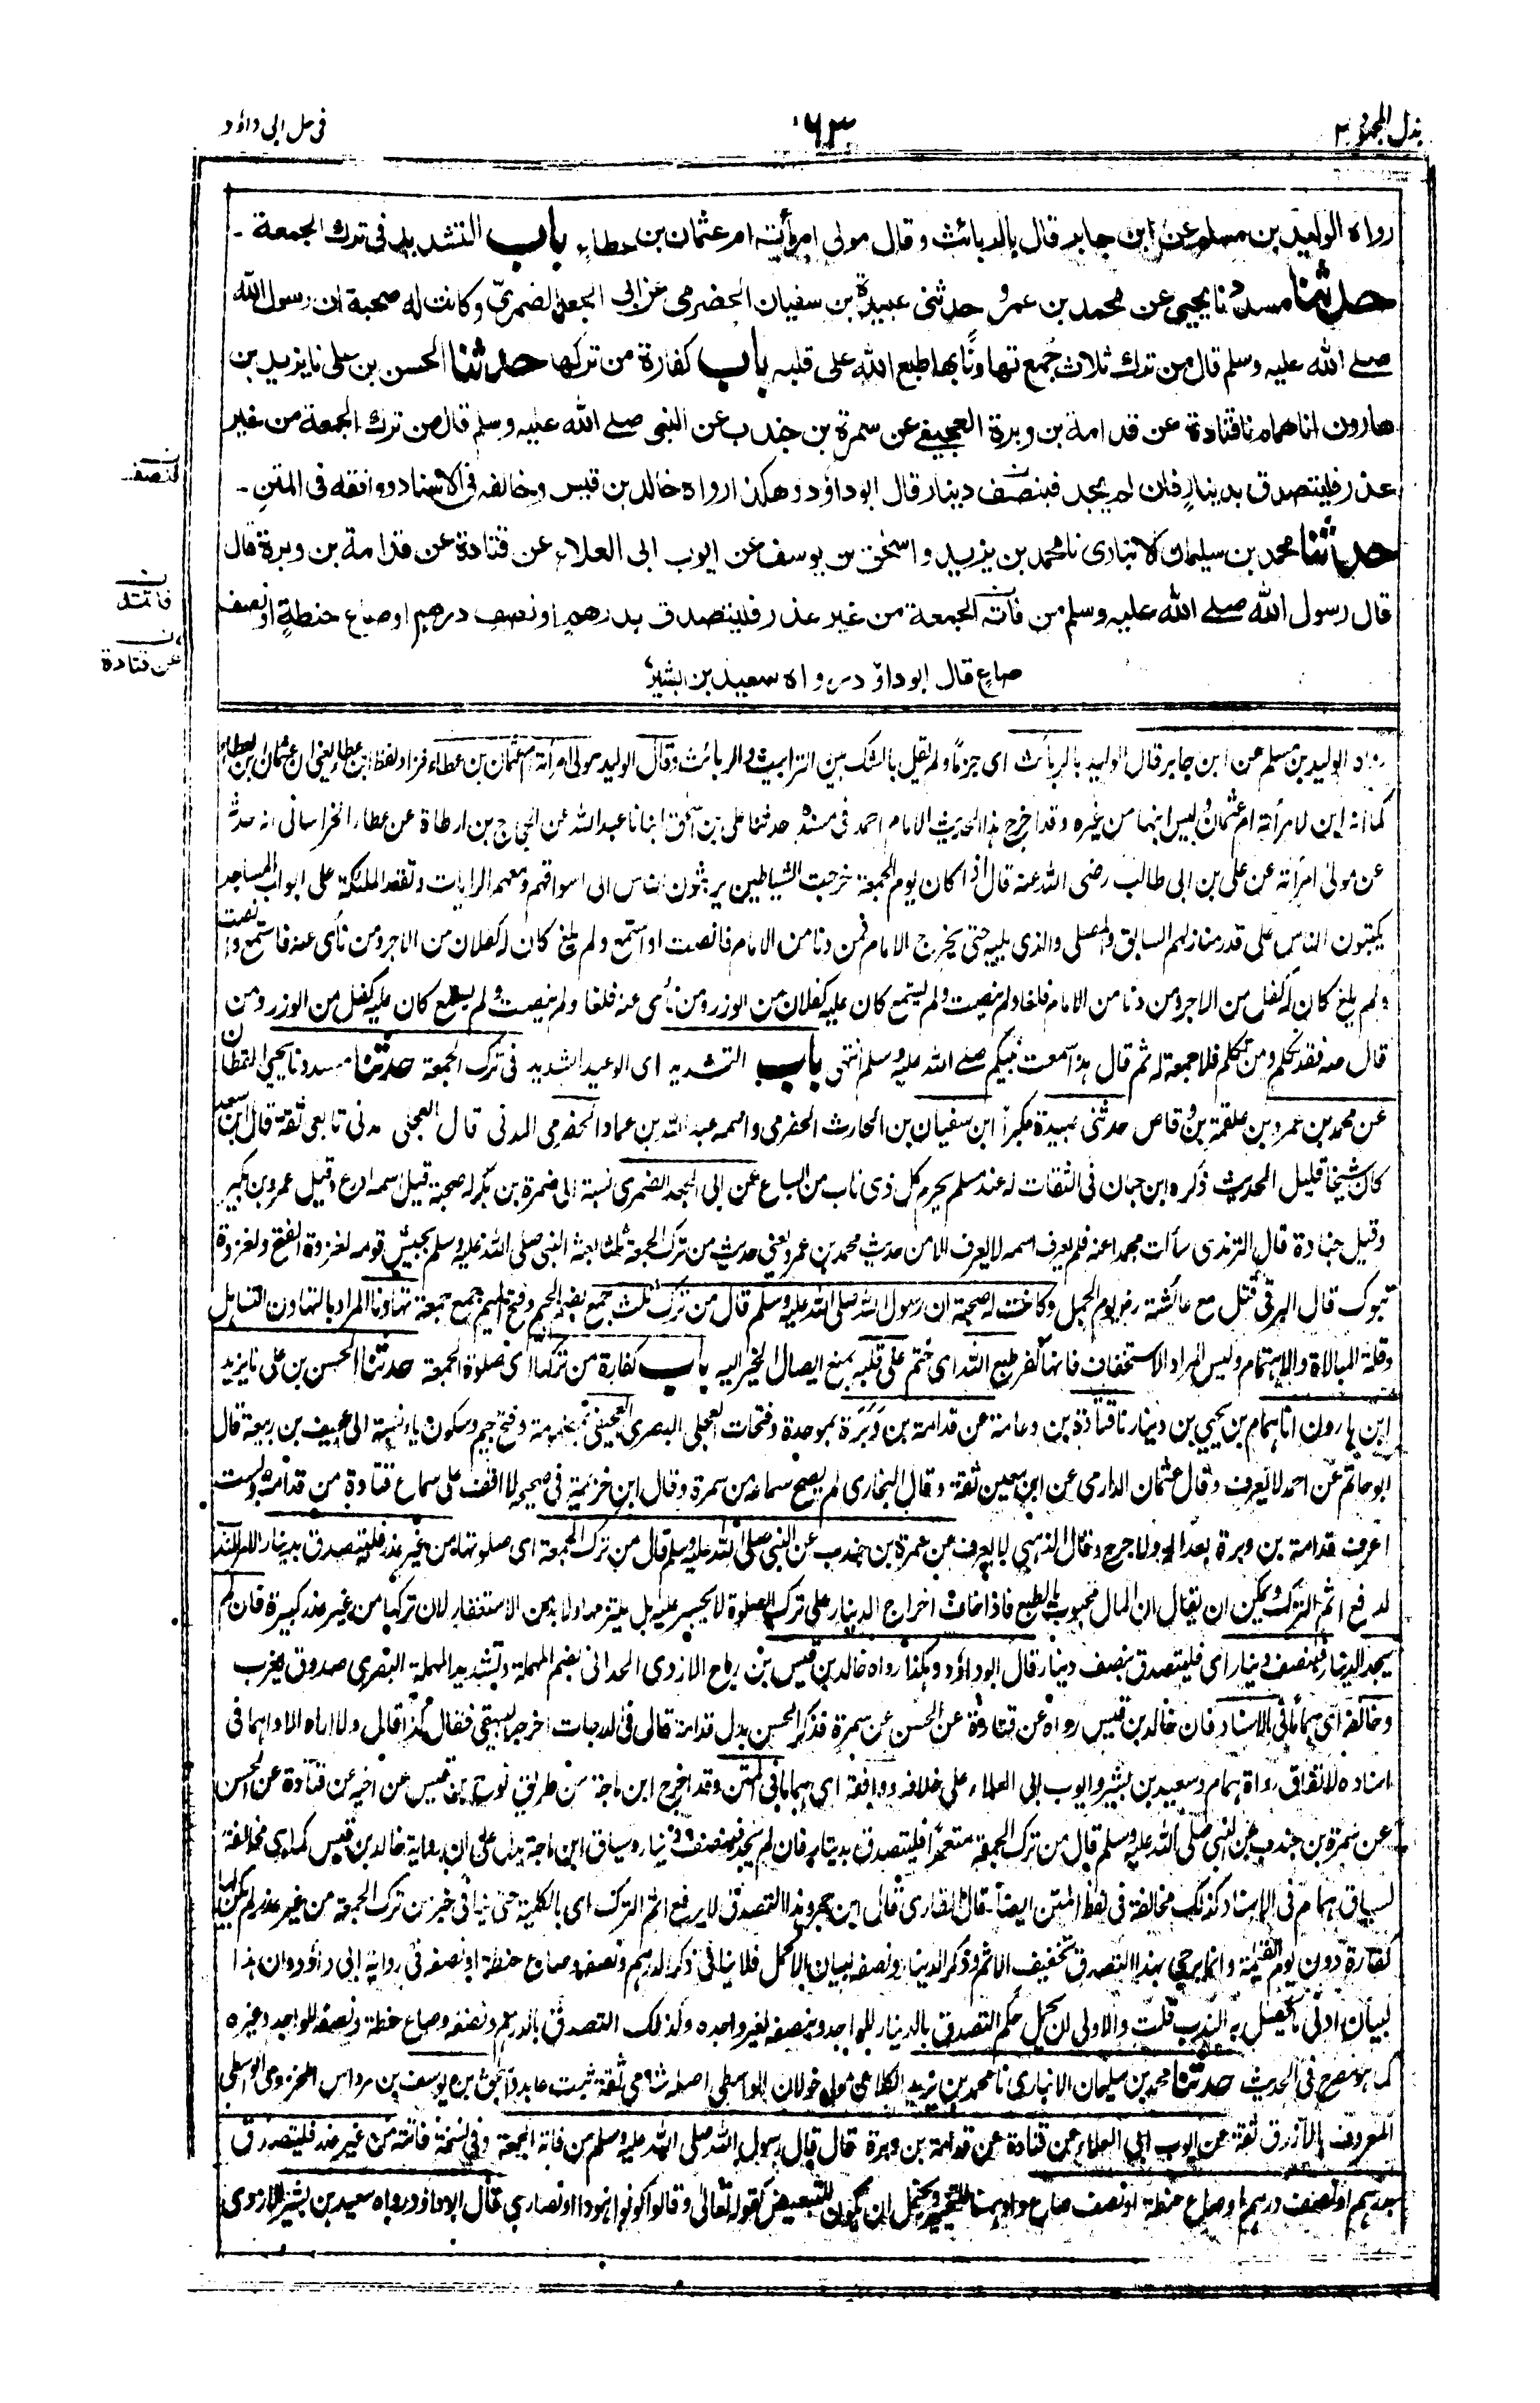 بذل المجهود ٢
١٦٣
في حل ابي داؤد
رواه الوليد بن مسلم عن ابن جابر قال بالربائث وقال مولى امرأته ام عثمان بن عطاء باب التشديد في ترك الجمعة -
حدثنا مسدد نا يحيى عن محمد بن عمرو حدثني عبيدة بن سفيان الحضرمي عن ابي الجعد الضمري وكانت له صحبة ان رسول الله
صلى الله عليه وسلم قال من ترك ثلاث جُمع تهاونًا بها طبع الله على قلبه باب كفارة من تركها حدثنا الحسن بن علي نا يزيد بن
هارون انا همام نا قتادة عن قدامة بن وبرة العجيفي عن سمرة بن جندب عن النبي صلى الله عليه وسلم قال من ترك الجمعة من غير
عذر فليتصدق بدينارٍ فان لم يجد فبنصف دينار قال ابو داؤد وهكذا رواه خالد بن قيس وخالفه في الاسناد ووافقه في المتنِ -
حدثنا محمد بن سليمان الانباري نا محمد بن يزيد واسحق بن يوسف عن ايوب ابي العلاء عن قتادة عن قدامة بن وبرة قال
قال رسول الله صلى الله عليه وسلم من فاته الجمعة من غير عذر فليتصدق بدرهمٍ او نصفِ درهمٍ او صاع حنطةٍ او نصف
صاعٍ قال ابو داؤد رواه سعيد بن بشير
ن فنصف
ن فاتته
ن عن قتادة
رواه الوليد بن مسلم عن ابن جابر قال الوليد بالربائث اى جزمًا ولم يقل بالشك بين الترابيث والربائث وقال الوليد مولى امرأته ام عثمان بن عطاء فزاد لفظ ابن عطاء يعني ان عثمان بن عطاء
كما انه ابن لامرأته ام عثمان وليس ابنها من غيره وقد اخرج هذا الحديث الامام احمد في مسنده حدثنا علي بن اسحق ابنانا عبد الله عن الحجاج بن ارطاة عن عطاء الخراساني انه حدثه
عن مولى امرأته عن علي بن ابي طالب رضي الله عنه قال اذا كان يوم الجمعة خرجت الشياطين يريثون الناس الى اسواقهم ومعهم الرايات وتقعد الملئكة على ابواب المساجد
يكتبون الناس على قدر منازلهم السابق والمصلي والذى يليه حتى يخرج الامام فمن دنا من الامام فانصت او استمع ولم يلغ كان له كفلان من الاجر ومن نأى عنه فاستمع وانصت
ولم يلغ كان له كفل من الاجر ومن دنا من الامام فلغا ولم ينصت ولم يستمع كان عليه كفلان من الوزر ومن نأى عنه فلغا ولم ينصت ولم يستمع كان عليه كفل من الوزر ومن
قال صه فقد تكلم ومن تكلم فلا جمعة له ثم قال هذا سمعت نبيكم صلى الله عليه وسلم انتهى باب التشديد اى الوعيد الشديد في ترك الجمعة حدثنا مسدد نا يحيى القطان
عن محمد بن عمرو بن علقمة بن وقاص حدثني عبيدة مكبرًا ابن سفيان بن الحارث الحضرمي واسمه عبد الله بن عماد الحضرمي المدني قال العجلي مدني تابعي ثقة قال ابن سعد
كان شيخًا قليل الحديث ذكره ابن حبان في الثقات له عند مسلم يحرم كل ذى ناب من السباع عن ابي الجعد الضمري نسبة الى ضمرة بن بكر له صحبة قيل اسمه ادرع وقيل عمرو بن بكير
وقيل جنادة قال الترمذي سألت محمدًا عنه فلم يعرف اسمه لا يعرف الا من حديث محمد بن عمرو يعني حديث من ترك الجمعة ثلثا بعثه النبي صلى الله عليه وسلم يجيش قومه لغزوة الفتح ولغزوة
تبوك قال البرقي قتل مع عائشة رض يوم الجمل وكانت له صحبة ان رسول الله صلى الله عليه وسلم قال من ترك ثلث جمع بضم الجيم وفتح الميم جمع جمعة تهاونا المراد بالتهاون التساهل
وقلة المبالاة والاهتمام وليس المراد الاستخفاف فانها كفر طبع الله اى ختم على قلبه بمنع ايصال الخير اليه باب كفارة من تركها اى صلوة الجمعة حدثنا الحسن بن علي نا يزيد
ابن هارون انا همام بن يحيى بن دينار نا قتادة بن دعامة عن قدامة بن وَبَرَة بموحدة وفتحات العجلي البصري العجيفي بمضمومة وفتح جيم وسكون ياء نسبة الى عجيف بن ربيعة قال
ابو حاتم عن احمد لا يعرف وقال عثمان الدارمي عن ابن معين ثقة وقال البخاري لم يصح سماعه من سمرة وقال ابن خزيمة في صحيحه لا اقف على سماع قتادة من قدامة ولست
اعرف قدامة بن وبرة بعدالة ولا جرح وقال الذهبي لا يعرف عن سمرة بن جندب عن النبي صلى الله عليه وسلم قال من ترك الجمعة اى صلوتها من غير عذر فليتصدق بدينار
لدفع اثم الترك ويمكن ان يقال ان المال محبوب بالطبع فاذا خاف اخراج الدينار على ترك الصلوة لا يجسر عليه بل يلتزمها ولا بد من الاستغفار لان تركها من غير عذر كبيرة فان لم
يجد الدينار فبنصف دينار اى فليتصدق بنصف دينار قال ابو داؤد وهكذا رواه خالد بن قيس بن رباح الازدي الحداني بضم المهملة وتشديد المهملة البصري صدوق يغرب
وخالفه اى همامًا في الاسناد فان خالد بن قيس رواه عن قتادة عن الحسن عن سمرة فذكر الحسن بدل قدامة قال في الدرجات اخرجه البيهقي فقال كذا قال ولا اراه الا واهما في
اسناده لاتفاق رواة همام وسعيد بن بشير وايوب ابي العلاء على خلافه ووافقه اى همامًا في المتن وقد اخرج ابن ماجة من طريق نوح بن قيس عن اخيه عن قتادة عن الحسن
عن سمرة بن جندب عن النبي صلى الله عليه وسلم قال من ترك الجمعة متعمدًا فليتصدق بدينار فان لم يجد فبنصف دينار وسياق ابن ماجة يدل على ان رواية خالد بن قيس كما هي مخالفة
لسياق همام في الاسناد كذلك مخالفة في لفظ المتن ايضًا قال القاري قال ابن حجر وهذا التصدق لا يرفع اثم الترك اى بالكلية حتى ينافي خبر من ترك الجمعة من غير عذر لم يكن لها
كفارة دون يوم القيمة وانما يرجى بهذا التصدق تخفيف الاثم وذكر الدينار ونصفه لبيان الاكمل فلا ينافي ذكر الدرهم ونصفه وصاع حنطة او نصفه في رواية ابي داؤد وان هذا
لبيان ادنى ما يحصل به الندب قلت والاولى ان يحمل حكم التصدق بالدينار للواجد وبنصفه لغير واجده وكذلك التصدق بالدرهم ونصفه وصاع حنطة ونصفه للواجد وغيره
كما هو مصرح في الحديث حدثنا محمد بن سليمان الانباري نا محمد بن يزيد الكلاعي مولى خولان الواسطي اصله شامي ثقة ثبت عابد واسحق بن يوسف بن مرداس المخزومي الواسطي
المعروف بالازرق ثقة عن ايوب ابي العلاء عن قتادة عن قدامة بن وبرة قال قال رسول الله صلى الله عليه وسلم من فاته الجمعة وفي نسخة فاتته من غير عذر فليتصدق
بدرهم او نصف درهم او صاع حنطة او نصف صاع واو ههنا للتخيير ويحتمل ان يكون للتبعيض كقوله تعالى وقالوا كونوا هودا او نصارى قال ابو داؤد رواه سعيد بن بشير الازدي